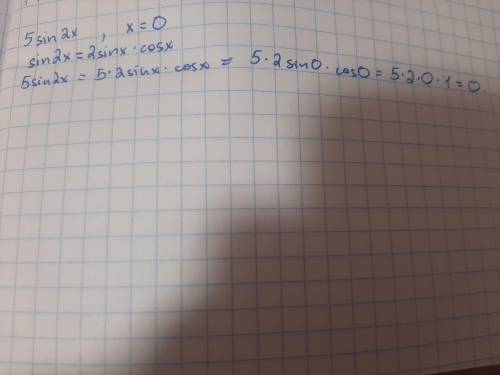 5sin2x , x=0
sin2x = 2sinx · cosx
5sin2x = 5·2sinx · cosx = 5·2sin0 · cos0 = 5·2·0·1=0